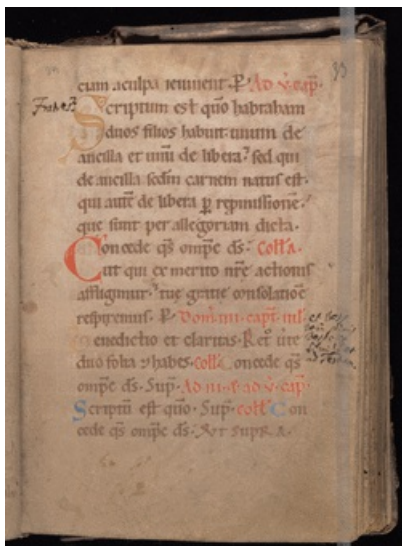 83
ciam a culpa ieiunent. P. Ad v. cap.
Fratres
Scriptum est quō habraham
duos filios habuit. unum de
ancilla et unū de libera. sed qui
de ancilla sedm carnem natus est.
qui autē de libera p repmissionē.
que sunt per allegoriam dicta.
Concede qs omps ds. Coll'a.
ut qui ex merito nrē actionis
affligimur. tuę gratie consolationē
respiremus. P. Dom. capt.
enedictio et claritas. Ret
duo folia habes. Coll. Concede qs
omps ds. Sup. Ad v. cap.
Scriptū est quo. Sup. coll. Con
cede qs omps ds. Ut supra.